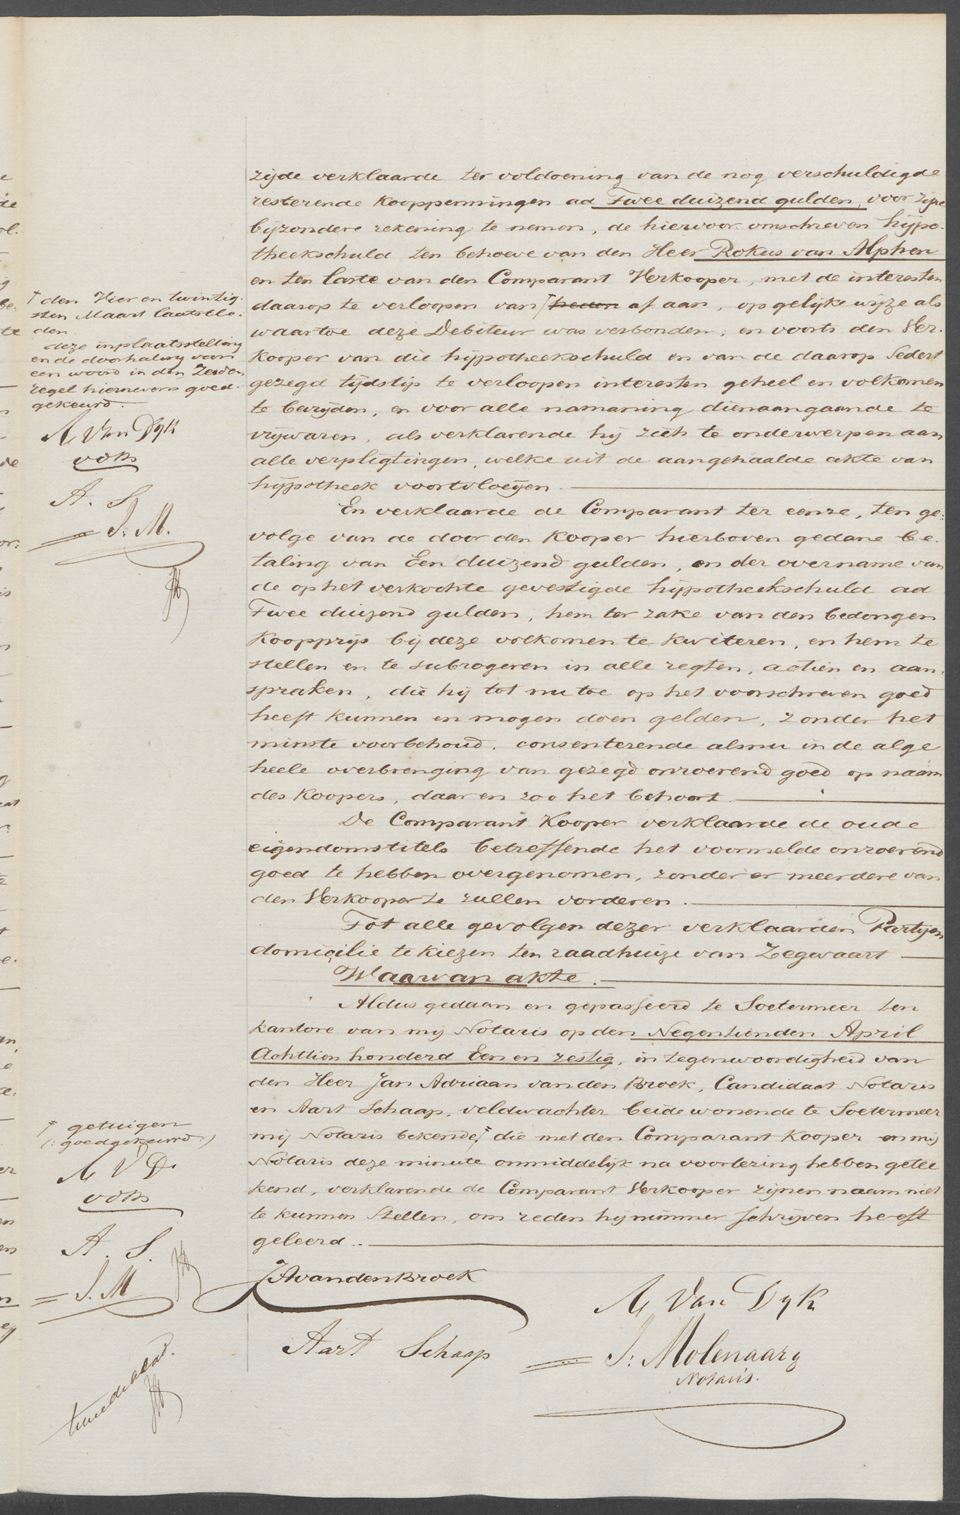 zijde verklaarde ter voldoening van de nog verschuldigde
resterende kooppenningen ad Twee duizend gulden, voor zijne
bijzondere rekening te nemen, de hiervoor omschreven hijpo-
theekschuld ten behoeve van den Heer Rokus van Alphen
en ten laste van den Comparant Verkooper, met de interesten
daarop te verloopen van † heden af aan, op gelijke wijze als
waartoe deze Debiteur was verbonden, en voorts den Ver-
kooper van die hijpotheekschuld en van de daarop sedert
gezegd tijdstip te verloopen interesten geheel en volkomen
te bevrijden, en voor alle namaning dienaangaande te
vrijwaren, als verklarende hij zich te onderwerpen aan
alle verpligtingen, welke uit de aangehaalde akte van
hijpotheek voortvloeijen.
En verklaarde de Comparant ter eenre, ten ge-
volge van de door den Kooper hierboven gedane be-
taling van Een duizend gulden, en der overname van
de op het verkochte gevestigde hijpotheekschuld ad
Twee duizend gulden, hem ter zake van den bedongen
Koopprijs bij deze volkomen te kwiteren, en hem te
stellen en te subrogeren in alle regten, actien en aan-
spraken, die hij tot nu toe op het voorschreven goed
heeft kunnen en mogen doen gelden, zonder het
minste voorbehoud, consenterende alsnu in de alge
heele overbrenging van gezegd onroerend goed op naam
des Koopers, daar en zoo het behoort.
De Comparant Kooper verklaarde de oude
eigendomstitels betreffende het voormelde onroerend
goed te hebben overgenomen, zonder er meerdere van
den Verkooper te zullen vorderen.
Tot alle gevolgen dezer verklaarden Partijen
domicilie te kiezen ten raadhuize van Zegwaart
Waarvan akte.
Aldus gedaan en gepasseerd te Soetermeer ten
kantore van mij Notaris op den Negentienden April
Achttien honderd Een en zestig, in tegenwoordigheid van
den Heer Jan Adriaan van den Broek, Candidaat Notaris
en Aart Schaap, veldwachter beide wonende te Soetermeer
mij Notaris bekende, † die met den Comparant Kooper en mij
Notaris deze minute onmiddelijk na voorlezing hebben getee
kend, verklarende de Comparant Verkooper zijnen naam niet
te kunnen stellen, om reden hij nimmer schrijven heeft
geleerd.
† den Vier en twintig-
sten Maart laatstle-
den
deze inplaatsstelling
en de doorhaling van
een woord in den zesden
regel hiernevens goed-
gekeurd.
A Van Dyk
vdB
A. S
J. M.
† getuigen
(: goedgekeurd)
A V D.
vdB
A. S.
J. M
JAvandenBroek
A Van Dyk
Aart Schaap
J: Molenaar
Notaris.
tweede blad.